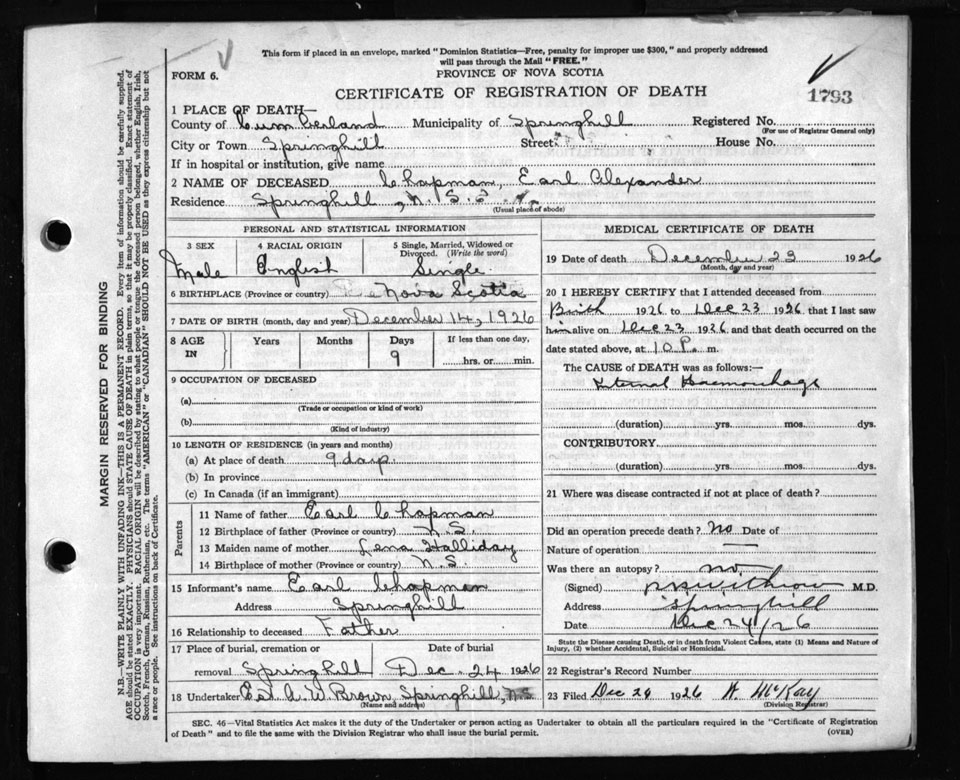 This form if placed in an envelope, marked "Dominion Statistics—Free, penalty for improper use $300," and properly addressed
will pass through the Mail "FREE."
FORM 6.
PROVINCE OF NOVA SCOTIA
CERTIFICATE OF REGISTRATION OF DEATH
1793
1 PLACE OF DEATH—
County of Cumberland Municipality of Springhill Registered No.
(For use of Registrar General only)
City or Town Springhill Street House No.
If in hospital or institution, give name
2 NAME OF DECEASED Chapman, Earl Alexander
Residence Springhill, N. S.
(Usual place of abode)
PERSONAL AND STATISTICAL INFORMATION
3 SEX 4 RACIAL ORIGIN 5 Single, Married, Widowed or
Divorced. (Write the word)
Male English Single.
6 BIRTHPLACE (Province or country) Nova Scotia
7 DATE OF BIRTH (month, day and year) December 14, 1926
8 AGE IN Years Months Days If less than one day,
9 hrs. or min.
9 OCCUPATION OF DECEASED
(a)
(Trade or occupation or kind of work)
(b)
(Kind of industry)
10 LENGTH OF RESIDENCE (in years and months)
(a) At place of death 9 days.
(b) In province
(c) In Canada (if an immigrant)
Parents
11 Name of father Earl Chapman
12 Birthplace of father (Province or country) N.S.
13 Maiden name of mother Lena Halliday
14 Birthplace of mother (Province or country) N.S.
15 Informant's name Earl Chapman
Address Springhill
16 Relationship to deceased Father
17 Place of burial, cremation or Date of burial
removal Springhill Dec. 24 1926
18 Undertaker Est. A. W. Brown, Springhill, N.S.
(Name and address)
MEDICAL CERTIFICATE OF DEATH
19 Date of death December 23 1926
(Month, day and year)
20 I HEREBY CERTIFY that I attended deceased from
Birth 1926 to Dec 23 1926 that I last saw
him alive on Dec 23 1926 and that death occurred on the
date stated above, at 10 P. m.
The CAUSE of DEATH was as follows:—
Haemorrhage
(duration) yrs. mos. dys.
CONTRIBUTORY.
(duration) yrs. mos. dys.
21 Where was disease contracted if not at place of death?
Did an operation precede death? No Date of
Nature of operation —
Was there an autopsy? no
(Signed) Withrow M.D.
Address Springhill
Date Dec 24/26
State the Disease causing Death, or in death from Violent Causes, state (1) Means and Nature of
Injury, (2) whether Accidental, Suicidal or Homicidal.
22 Registrar's Record Number
23 Filed Dec 24 1926 McKay
(Division Registrar)
SEC. 46—Vital Statistics Act makes it the duty of the Undertaker or person acting as Undertaker to obtain all the particulars required in the "Certificate of Registration
of Death" and to file the same with the Division Registrar who shall issue the burial permit. (OVER)
MARGIN RESERVED FOR BINDING
N.B.—WRITE PLAINLY WITH UNFADING INK—THIS IS A PERMANENT RECORD. Every item of information should be carefully supplied.
AGE should be stated EXACTLY. PHYSICIANS should STATE CAUSE OF DEATH in plain terms, so that it may be properly classified. Exact statement of
OCCUPATION is very important. RACIAL ORIGIN will be described by stating to what people or tongue the deceased person belonged, whether English, Irish,
Scotch, French, German, Russian, Ruthenian, etc. The terms "AMERICAN" or "CANADIAN" SHOULD NOT BE USED as they express citizenship but not
a race or people. See instructions on back of Certificate.